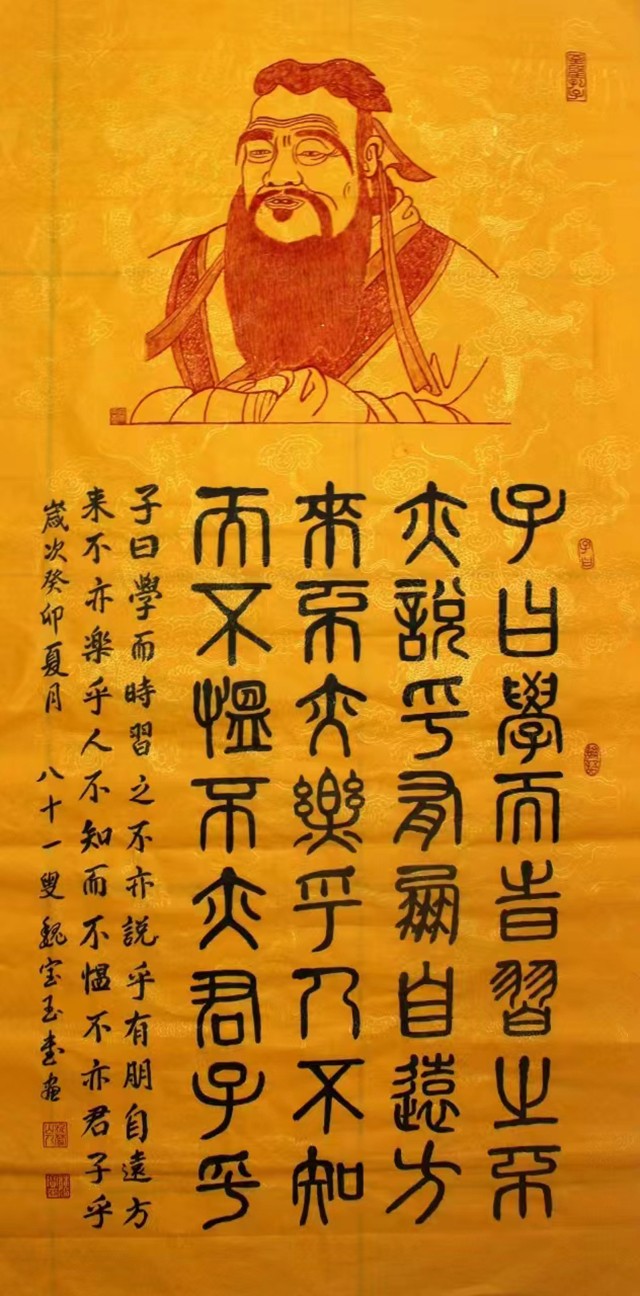 子曰學而旹習之不
亦說乎有朋自遠方
來不亦樂乎人不知
而不慍不亦君子乎
子曰學而時習之不亦説乎有朋自遠方
来不亦楽乎人不知而不愠不亦君子乎
歲次癸卯夏月 八十一叟魏宝玉書畫
子曰